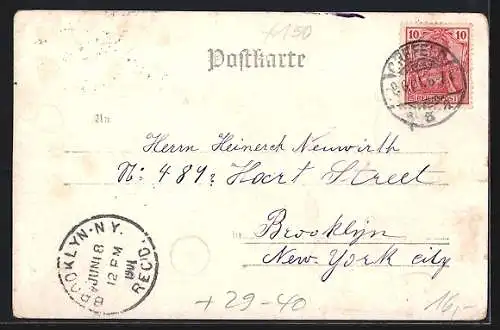 +150
10 10
Postkarte
CREFELD
An
Herrn Heinerch Neuwirth
No: 489 Hart Street
in Brooklyn
New-York city
BROOKLYN-N.Y.
JUN 18
12 PM
1901
REC'D.
+29-40
16,-